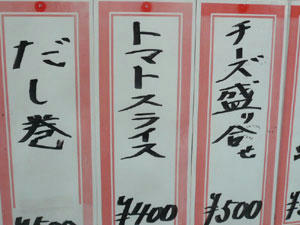 だし巻
トマトスライス
¥400
チーズ盛り合せ
¥500